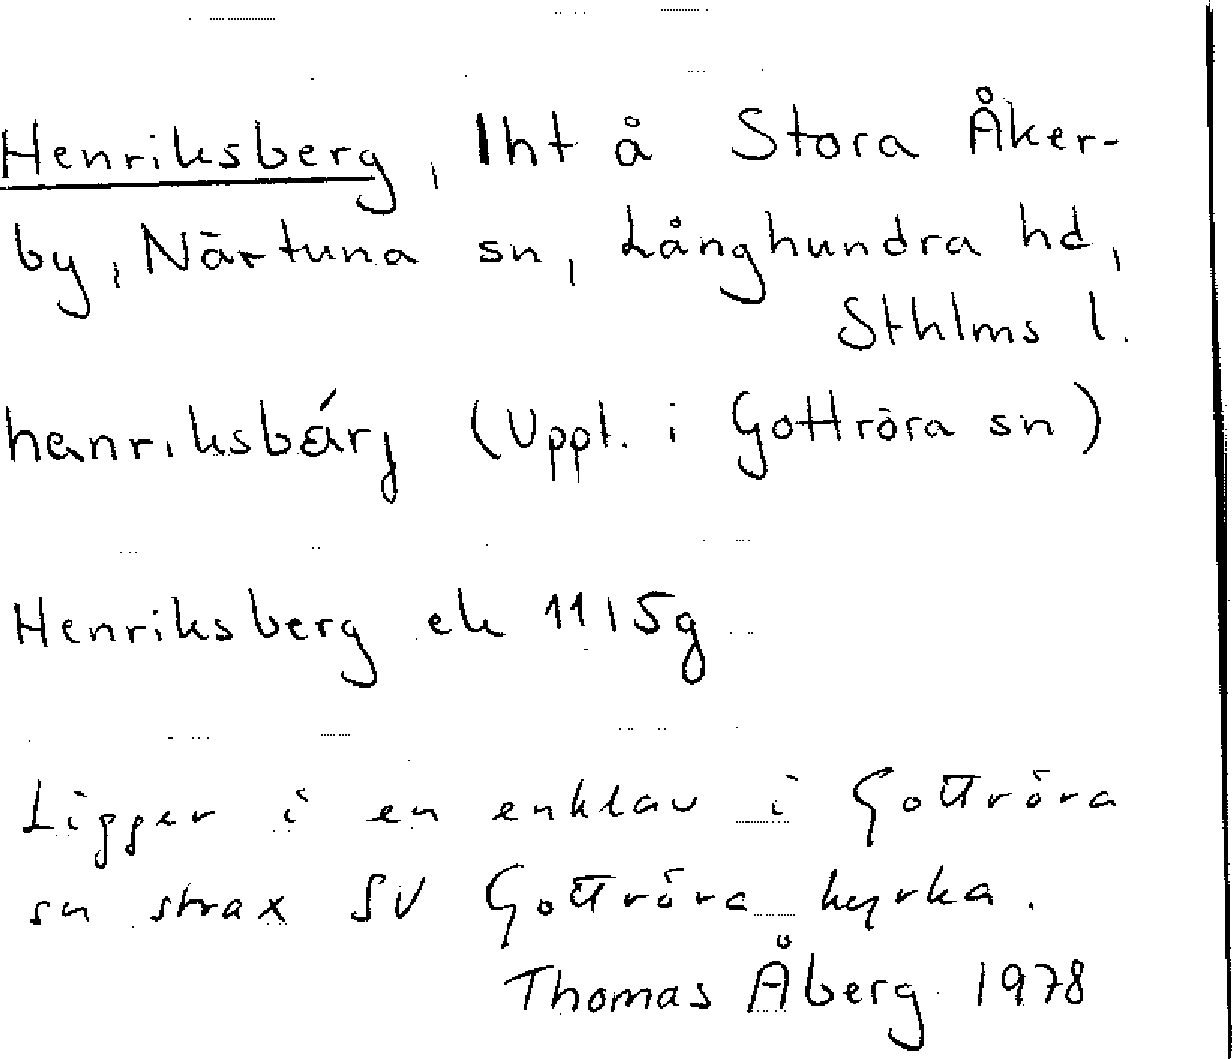 Henriksberg, lht å Stora Åker-
by, Närtuna sn, Långhundra hd,
Sthlms l.
hanriksbärj (Uppt. i Gottröra sn)
Henriksberg ek 11I5g
Ligger i en enklav i Gottröra
sn strax SV Gottröra kyrka.
Thomas Åberg 1978